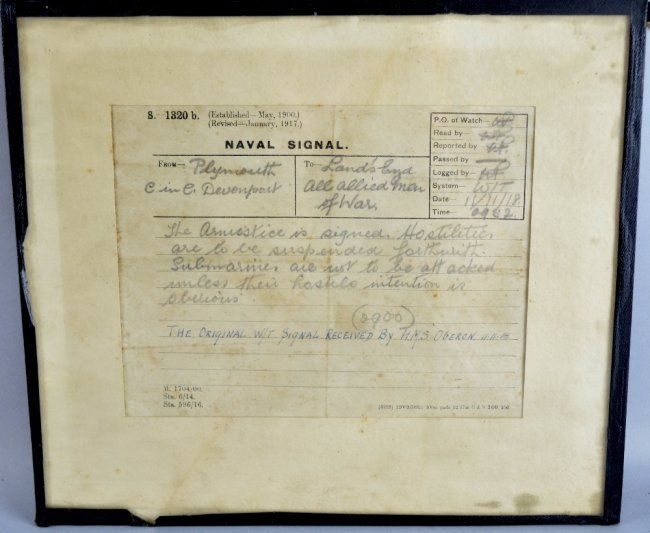 S. 1320 b. (Established—May, 1900.)
(Revised—January, 1917.)
NAVAL SIGNAL.
From— Plymouth
C in C. Devonport
To— Lands End
All allied Men
of War.
P.O. of Watch—
Read by—
Reported by—
Passed by—
Logged by—
System— W/T
Date 11/11/18.
Time— 0952.
The Armistice is signed. Hostilities
are to be suspended forthwith.
Submarines are not to be attacked
unless their hostile intention is
obvious
(0900)
THE ORIGINAL W/T SIGNAL RECEIVED BY H.M.S OBERON
M. 1704/00.
Sta. 6/14.
Sta. 596/16.